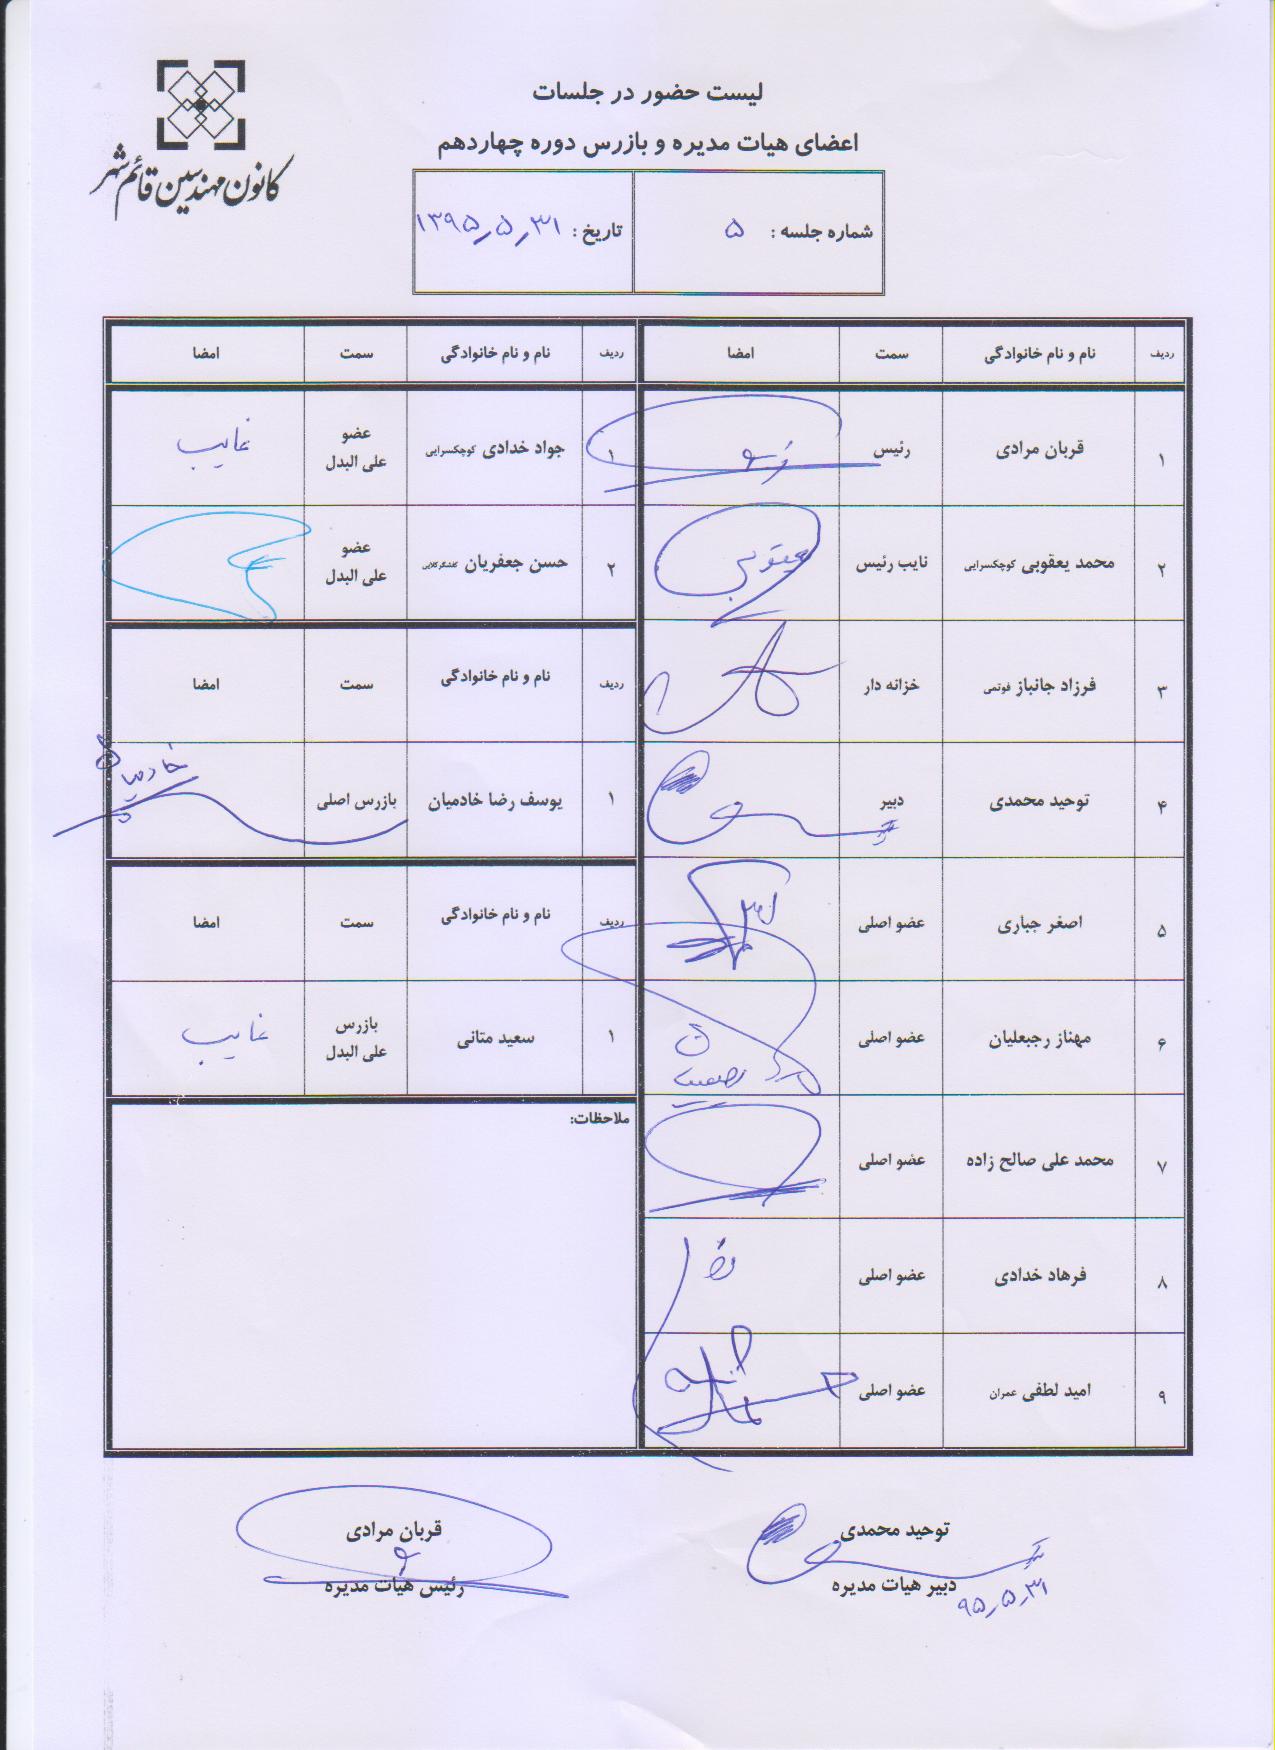 لیست حضور در جلسات
اعضای هیات مدیره و بازرس دوره چهاردهم
کانون مهندسین قائم شهر
شماره جلسه : ۵
تاریخ : ۱۳۹۵٫۵٫۳۱
ردیف نام و نام خانوادگی سمت امضا
۱ قربان مرادی رئیس
۲ محمد یعقوبی کوچکسرایی نایب رئیس یعقوبی
۳ فرزاد جانباز فوتمی خزانه دار
۴ توحید محمدی دبیر
۵ اصغر جباری عضو اصلی
۶ مهناز رجبعلیان عضو اصلی
۷ محمد علی صالح زاده عضو اصلی
۸ فرهاد خدادی عضو اصلی
۹ امید لطفی عمران عضو اصلی
ردیف نام و نام خانوادگی سمت امضا
۱ جواد خدادی کوچکسرایی عضو
علی البدل غایب
۲ حسن جعفریان عضو
علی البدل
ردیف نام و نام خانوادگی سمت امضا
۱ یوسف رضا خادمیان بازرس اصلی
ردیف نام و نام خانوادگی سمت امضا
۱ سعید متانی بازرس
علی البدل غایب
ملاحظات:
توحید محمدی
دبیر هیات مدیره
۹۵٫۵٫۳۱
قربان مرادی
رئیس هیات مدیره